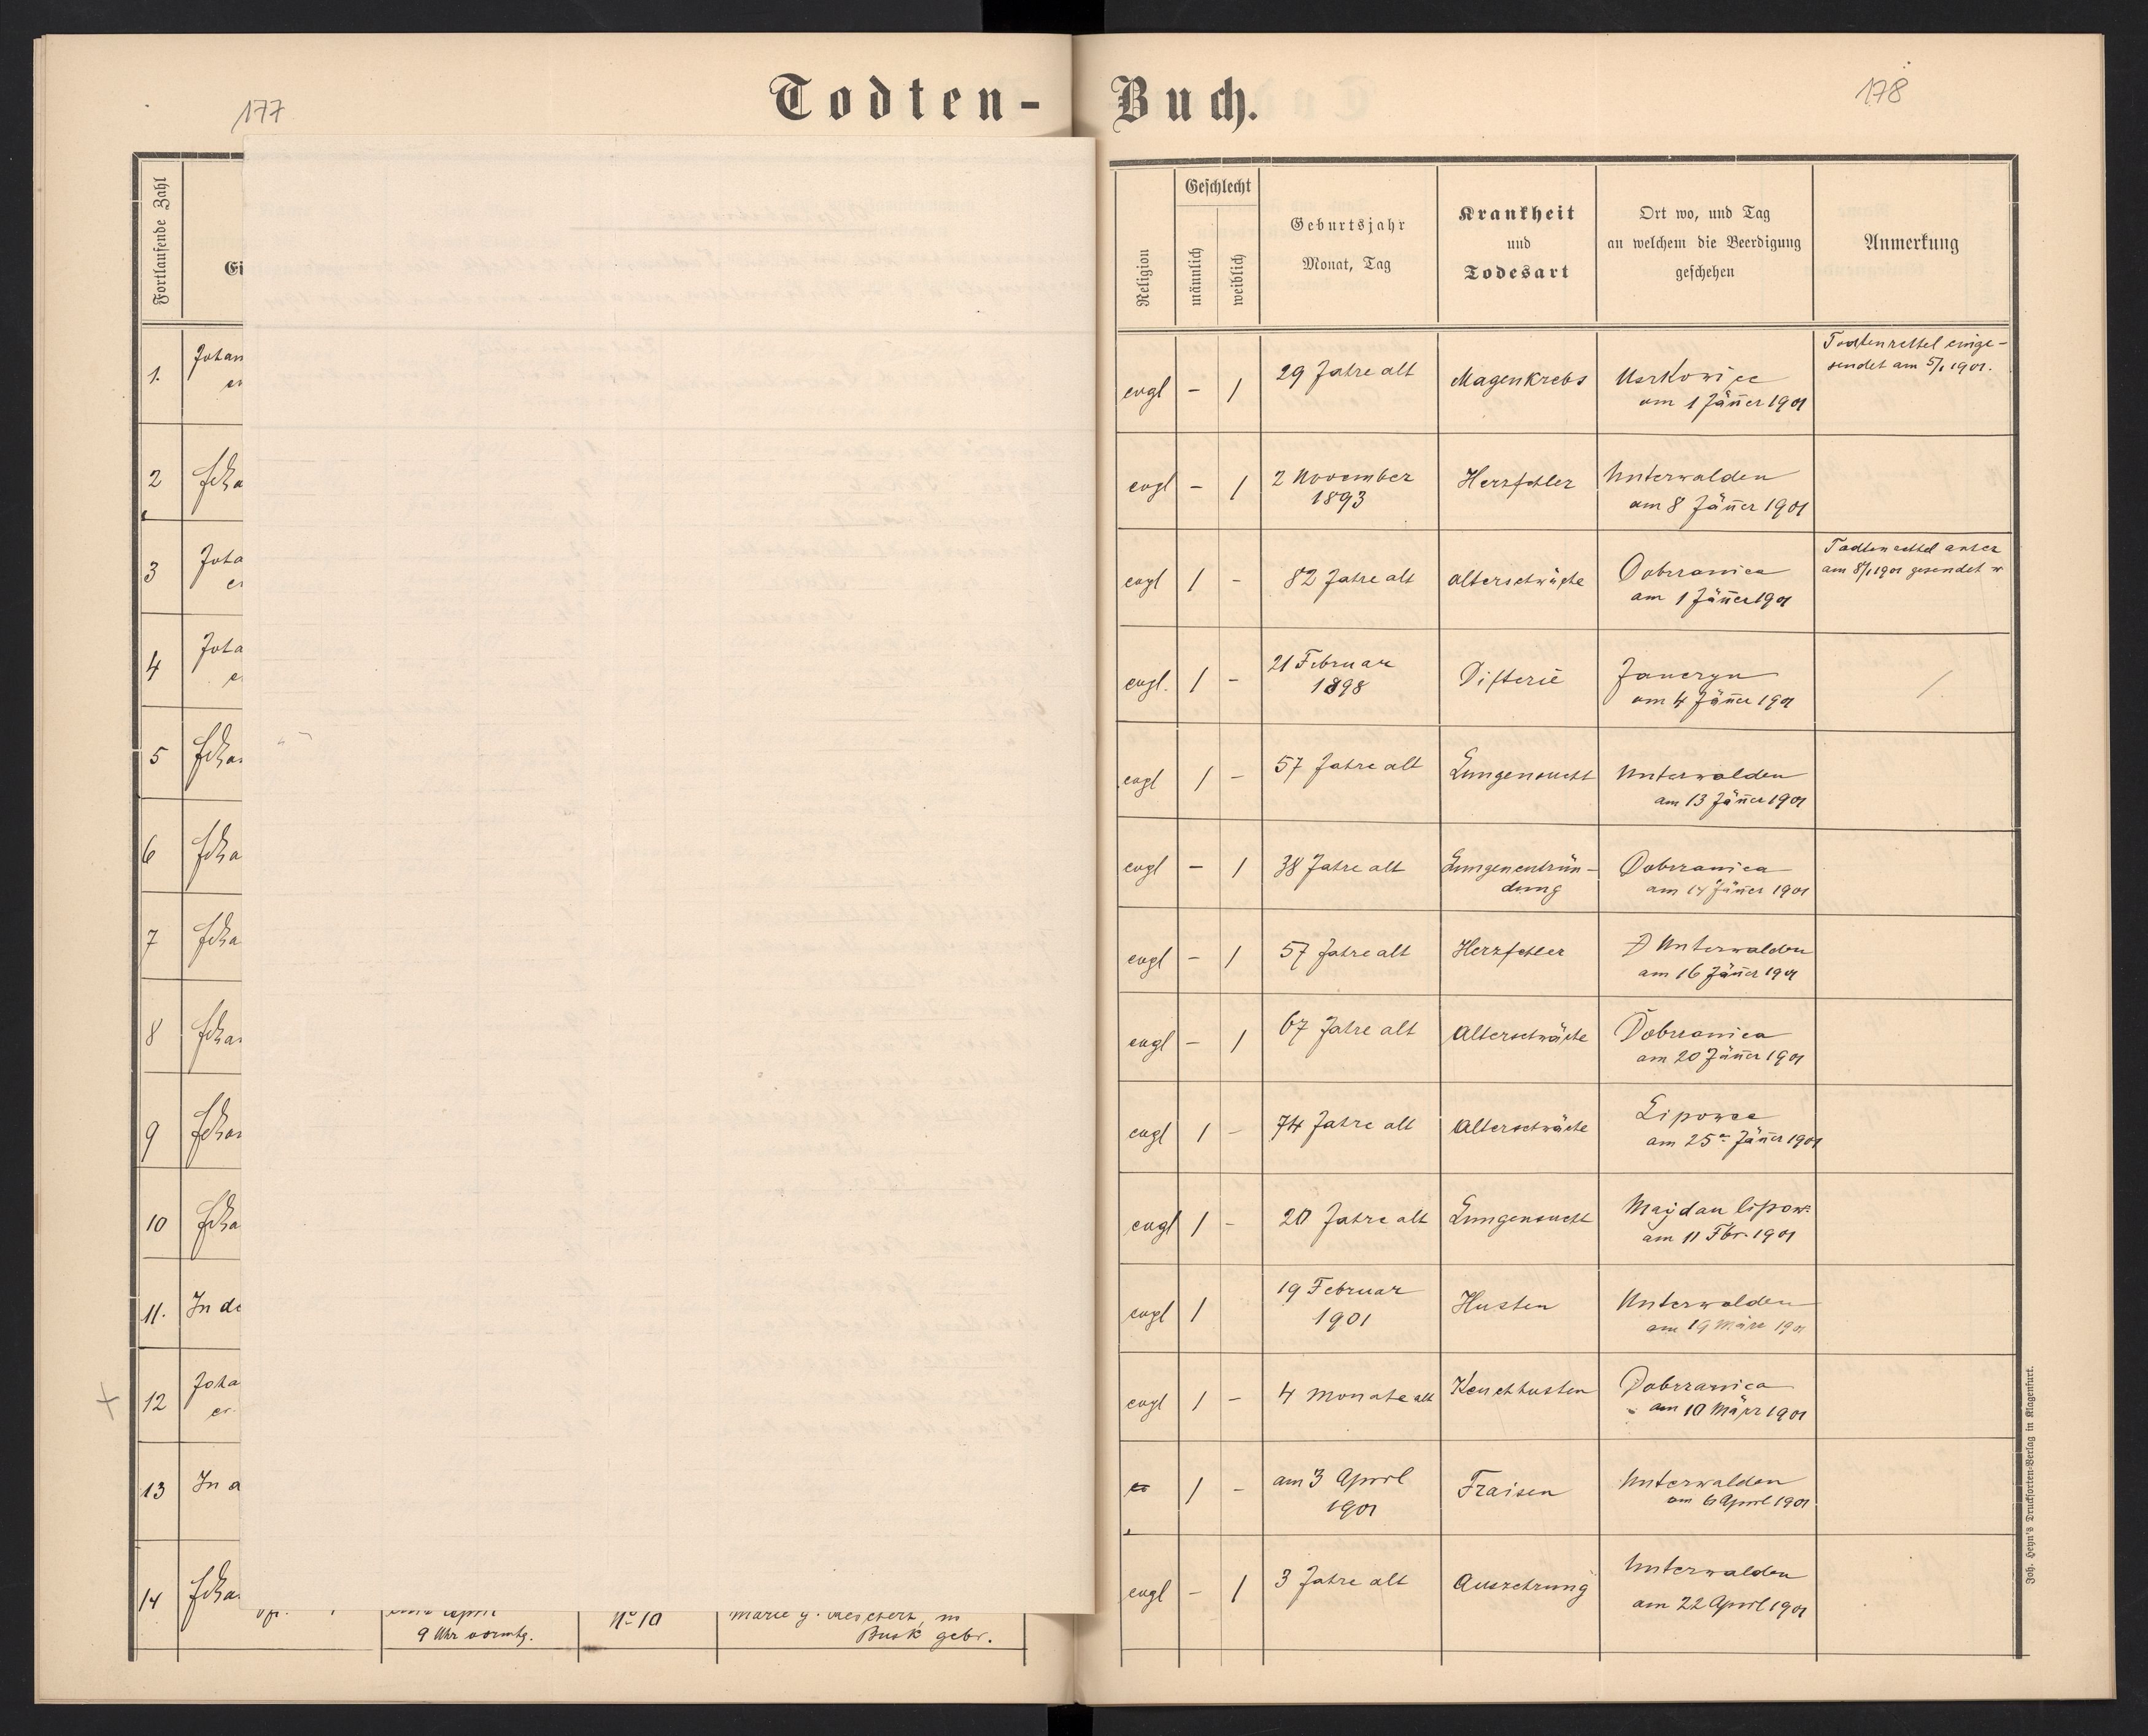 177
Todten-
Buch.
178
Fortlaufende Zahl
Ei
Religion
Geschlecht
männlich
weiblich
Geburtsjahr
Monat, Tag
Krankheit
und
Todesart
Ort wo, und Tag
an welchem die Beerdigung
geschehen
Anmerkung
1.
Johan
evgl
-
1
29 Jahre alt
Magenkrebs
am 1 Jän̄er 1901
Todtenzettel einge-
sendet am 5/1 1901.
2
evgl
-
1
2 November
1893
Herzfehler
Unterwalden
am 8 Jän̄er 1901
3
Joha
evgl
1
-
82 Jahre alt
Alterschwäche
Dobrzanica
am 1 Jän̄er 1901
Todtenzettel
am 8/1 1901 gesendet
4
Joha
evgl.
1
-
21 Februar
1898
Difterie
Janczyn
am 4 Jän̄er 1901
/
5
evgl
1
-
57 Jahre alt
Lungensucht
Unterwalden
am 13 Jän̄er 1901
6
evgl
-
1
38 Jahre alt
Lungenentzün-
dung
Dobrzanica
am 14 Jän̄er 1901
7
evgl
-
1
57 Jahre alt
Herzfehler
Unterwalden
am 16 Jän̄er 1901
8
evgl
-
1
67 Jahre alt
Alterschwäche
Dobrzanica
am 20 Jän̄er 1901
9
evgl
1
-
74 Jahre alt
Alterschwäche
Lipowce
am 25 Jän̄er 1901
10
evgl
1
-
20 Jahre alt
Lungensucht
Majdan lipow.
am 11 Fbr. 1901
11.
In de
evgl
1
19 Februar
1901
Husten
Unterwalden
am 19 März 1901
12
Joha
evgl
1
-
4 Monate alt
Keuchhusten
Dobrzanica
am 10 März 1901
13
In d
1
-
am 3 April
1901
Fraisen
Unterwalden
am 6 April 1901
14
evgl
-
1
3 Jahre alt
Auszehrung
Unterwalden
am 22 April 1901
April
9 Uhr vormtg.
No 10
Marie g. in
Busk gebr.
Joh. Heyn's Drucksorten-Verlag in Klagenfurt.